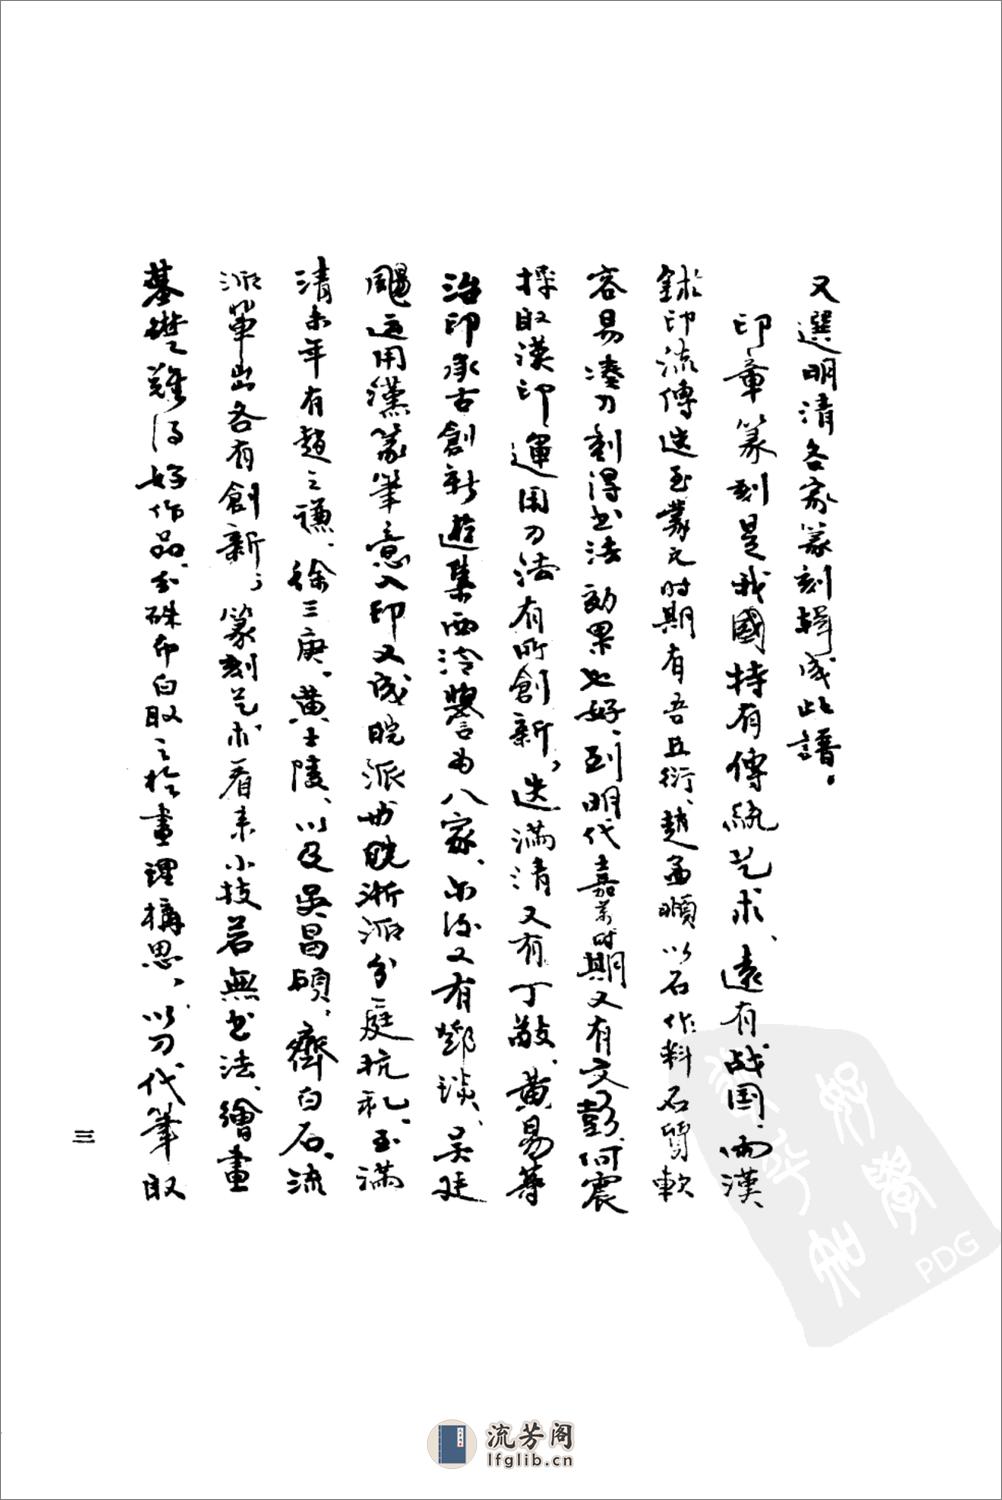 又選明清各家篆刻輯成此譜。
印章篆刻是我國特有傳統艺术、遠有战国、两漢、
鉨印流傳迭至蒙元时期有吾丘衍、趙孟頫以石作料石質軟
容易凑刀刻得书法効果也好、到明代嘉萬时期又有文彭、何震
採取漢印運用刀法有所創新，迭滿清又有丁敬、黄易等
治印承古創新遊集西泠譽为八家、尔後又有鄧琰、吴廷
颺运用漢篆筆意入印又成皖派、皖浙派分庭抗礼、至滿
清末年有趙之謙、徐三庚、黄士陵、以及吴昌碩，齊白石、流
派輩出各有創新；篆刻艺术看来小技若無书法、繪畫
基礎難得好作品、朱白取之於畫理構思，以刀代筆取
三
好學
PDG
流芳阁
lfglib.cn